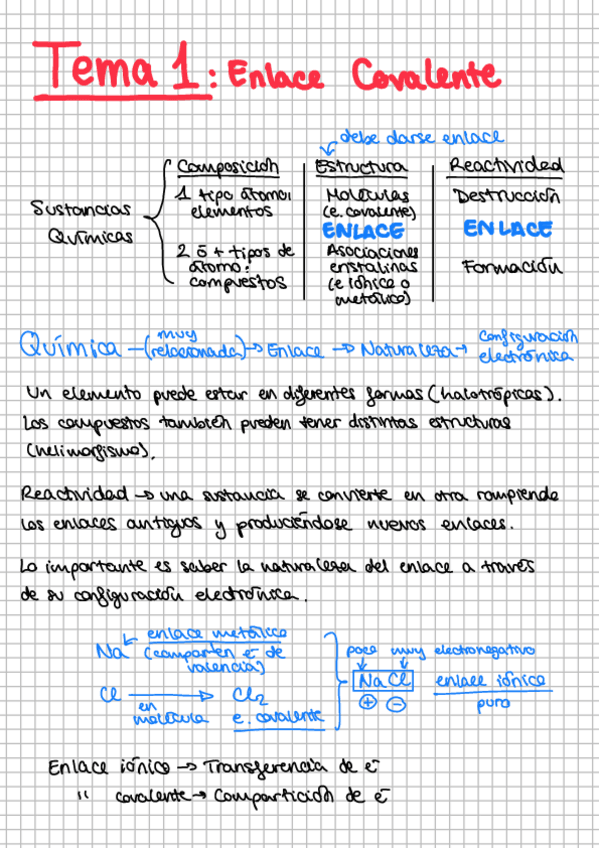 Tema 1: Enlace Covalente
debe darse enlace
Composición Estructura Reactividad
Sustancias
Químicas
1 tipo átomo:
elementos
2 ó + tipos de
átomo:
compuestos
Moléculas
(e. covalente)
ENLACE
Asociaciones
cristalinas
(e iónico o
metálico)
Destrucción
ENLACE
Formación
Química —(muy relacionada)→ Enlace → Naturaleza → configuración electrónica
Un elemento puede estar en diferentes formas (halotrópicas).
Los compuestos también pueden tener distintas estructuras
(helimorfismo).
Reactividad → una sustancia se convierte en otra rompiendo
los enlaces antiguos y produciéndose nuevos enlaces.
Lo importante es saber la naturaleza del enlace a través
de su configuración electrónica.
enlace metálico
Na (comparten e⁻ de
valencia)
Cl → Cl₂
en
molécula
e. covalente
poco muy electronegativo
NaCl enlace iónico
+ − puro
Enlace iónico → Transferencia de e⁻
" covalente → Compartición de e⁻